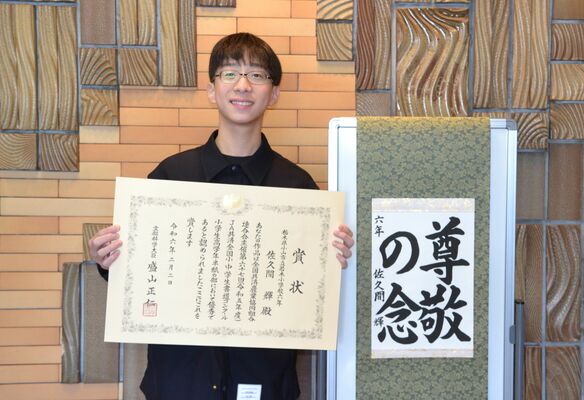 賞状
栃木県小山市立若木小学校六年
佐久間 輝 殿
あなたの作品は全国共済農業協同組合
連合会主催第六十七回(令和五年度)
JA共済全国小・中学生書道コンクール
小学生高学年半紙の部において優秀で
あると認められましたのでこれを
賞します
令和六年二月二日
文部科学大臣 盛山 正仁
尊敬
の念
六年 佐久間 輝